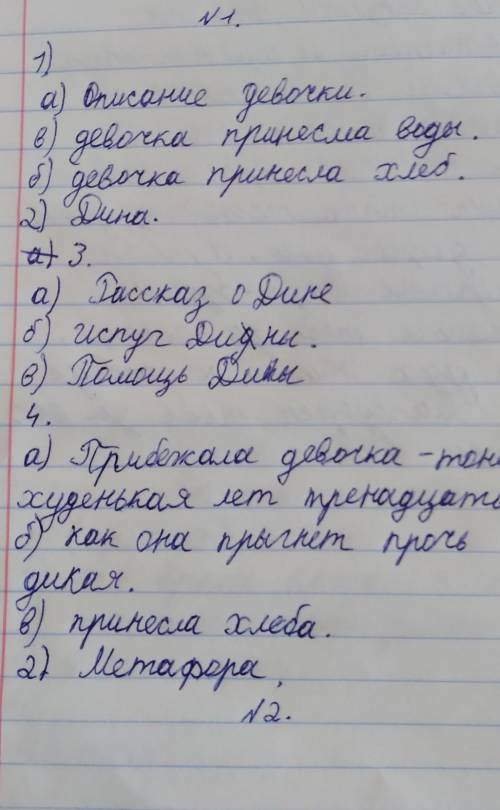 №1.
1)
а) Описание девочки.
в) девочка принесма воды.
б) девочка принесла хлеб.
2) Дина.
а) 3.
а) Рассказ о Дине
б) испуг Дины.
в) Помощь Дины
4.
а) Прибежала девочка - тон
худенькая лет тренадцать
б) как она прыгнет прочь
дикая.
в) принесла хлеба.
2) Метафора,
№2.